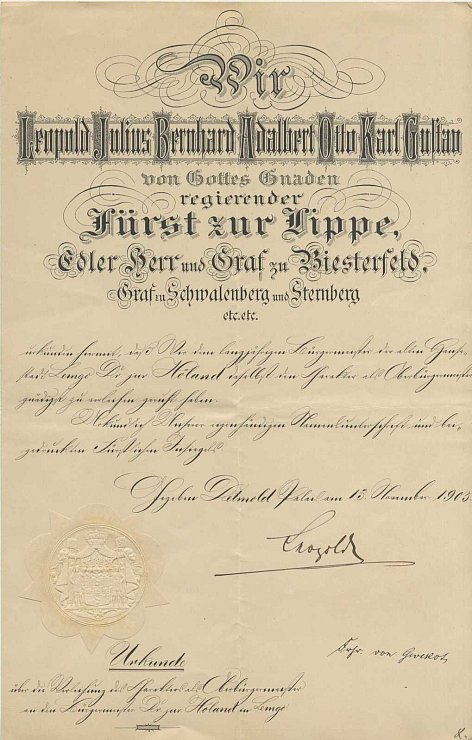 Wir
Leopold Julius Bernhard Adalbert Otto Karl Gustav
von Gottes Gnaden
regierender
Fürst zur Lippe,
Edler Herr und Graf zu Biesterfeld,
Graf zu Schwalenberg und Sternberg
etc. etc.
urkunden hiermit, daß Wir dem langjährigen Bürgermeister der alten Hanse-
stadt Lemgo Dr zur Höland daselbst den Charakter als Oberbürgermeister
gnädigst zu verleihen geruht haben.
Urkundlich Unserer eigenhändigen Namensunterschrift und bei-
gedruckten Fürstlichen Insiegels
Gegeben Detmold Palais am 13. November 1905
Leopold
Urkunde
von Gevekot
über die Verleihung des Charakters als Oberbürgermeister
an den Bürgermeister Dr zur Höland in Lemgo